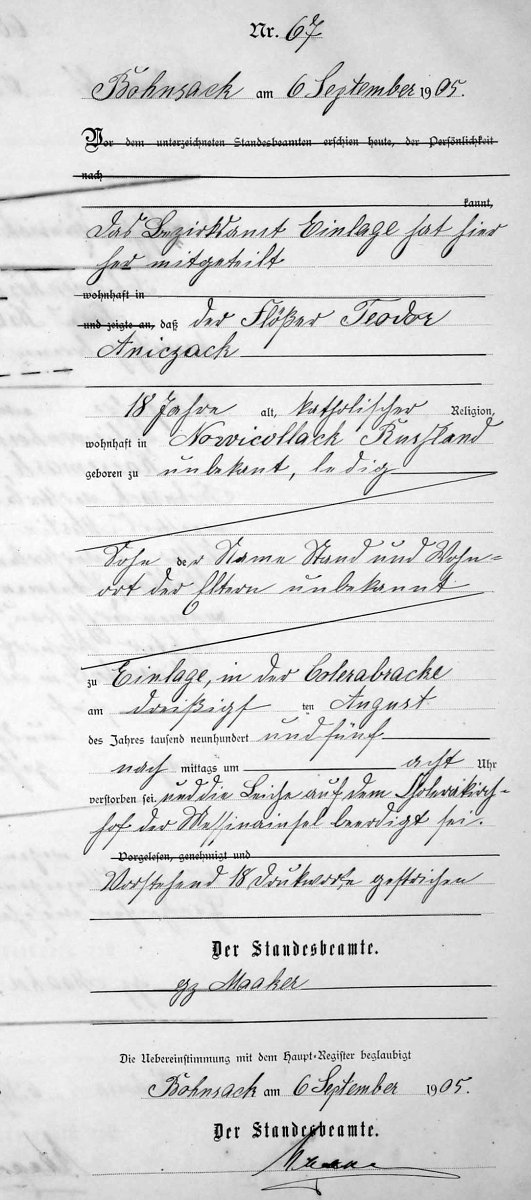 Nr. 67
Bohnsack am 6 September 1905.
Vor dem unterzeichneten Standesbeamten erschien heute, der Persönlichkeit
nach
kannt,
das Bezirksamt Einlage hat hier
her mitgeteilt
wohnhaft in
und zeigte an, daß der Flößer Teodor
Aniczack
18 Jahre alt, katholischer Religion,
wohnhaft in Nowicollack Russland
geboren zu unbekant, ledig
Sohn der Name Stand und Wohn=
ort der Eltern unbekannt
zu Einlage, in der Colerabracke
am dreißigs ten August
des Jahres tausend neunhundert und fünf
nach mittags um acht Uhr
verstorben sei und die Leiche auf dem Cholerakirch-
hof der Messinainsel beerdigt sei.
Vorgelesen, genehmigt und
Vorstehend 18 Druckworte gestrichen
Der Standesbeamte.
gz Maaker
Die Uebereinstimmung mit dem Haupt-Register beglaubigt
Bohnsack am 6 September 1905.
Der Standesbeamte.